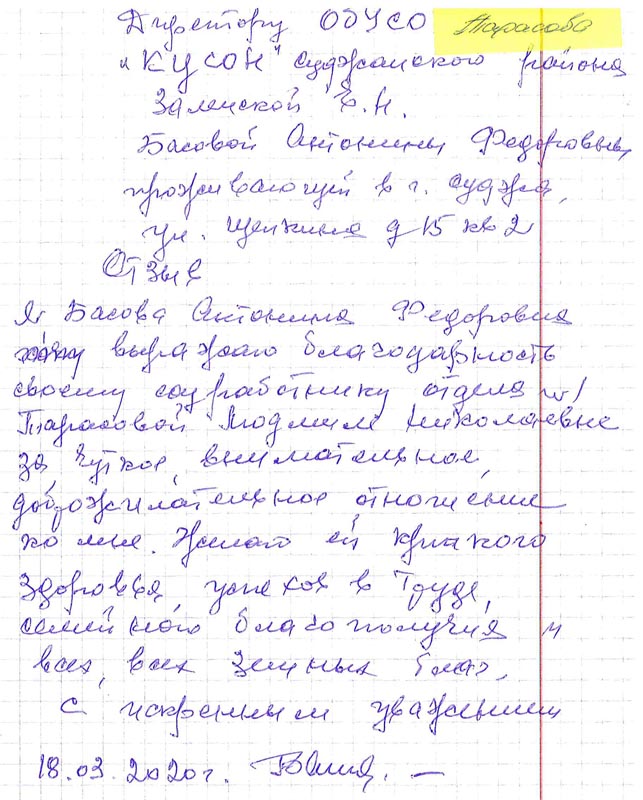 Директору ОБУСО Тарасова
"КЦСОН" Суджанского района
Заленской Е.Н.
Басовой Антонины Федоровны,
проживающей в г. Суджа,
ул. Щепкина д 15 кв 2
Отзыв
Я, Басова Антонина Федоровна
выражаю благодарность
своему соцработнику отдела
Тарасовой Людмиле Николаевне
за чуткое, внимательное,
доброжелательное отношение
ко мне. Желаю ей крепкого
здоровья, успехов в труде,
семейного благополучия и
всех, всех земных благ.
С искренним уважением
18.03.2020г.